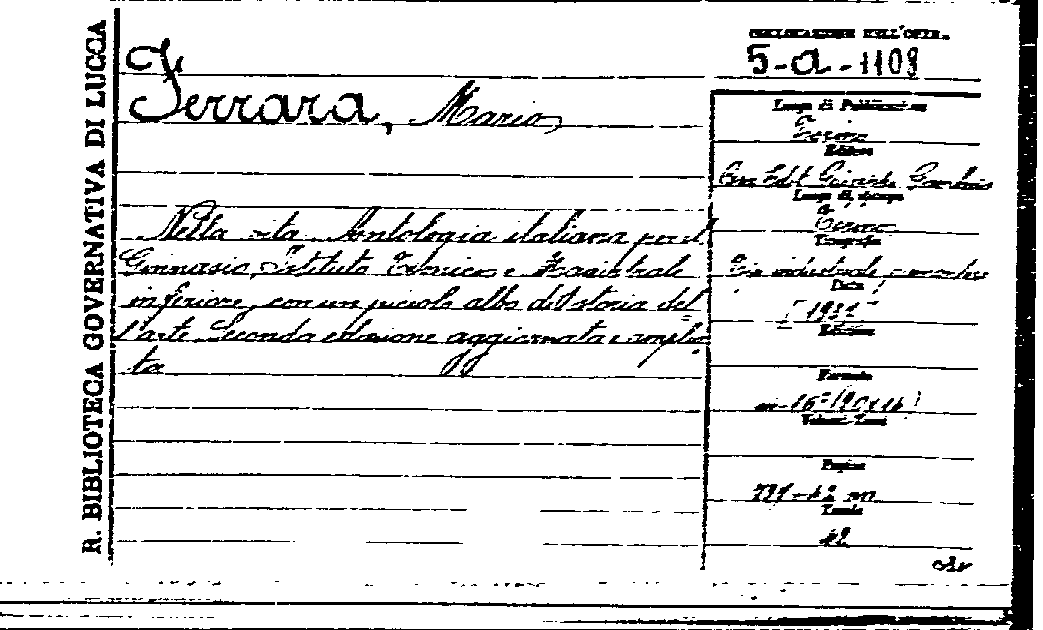 R. BIBLIOTECA GOVERNATIVA DI LUCCA
COLLOCAZIONE DELL'OPERA
5-a-1108
Ferrara, Mario
Nella vita Antologia italiana per il
Ginnasio, Istituto Tecnico e Magistrale
inferiore, con un piccolo albo di Storia del
l'arte Seconda edizione aggiornata e amplia
ta
Luogo di Pubblicazione
Torino
Editore
Casa Edit.
Luogo di stampa
Torino
Tipografia
Tip. industriale
Data
[1931]
Edizione
Formato
in-16°
Volumi-Tomi
Pagine
Tavole
42